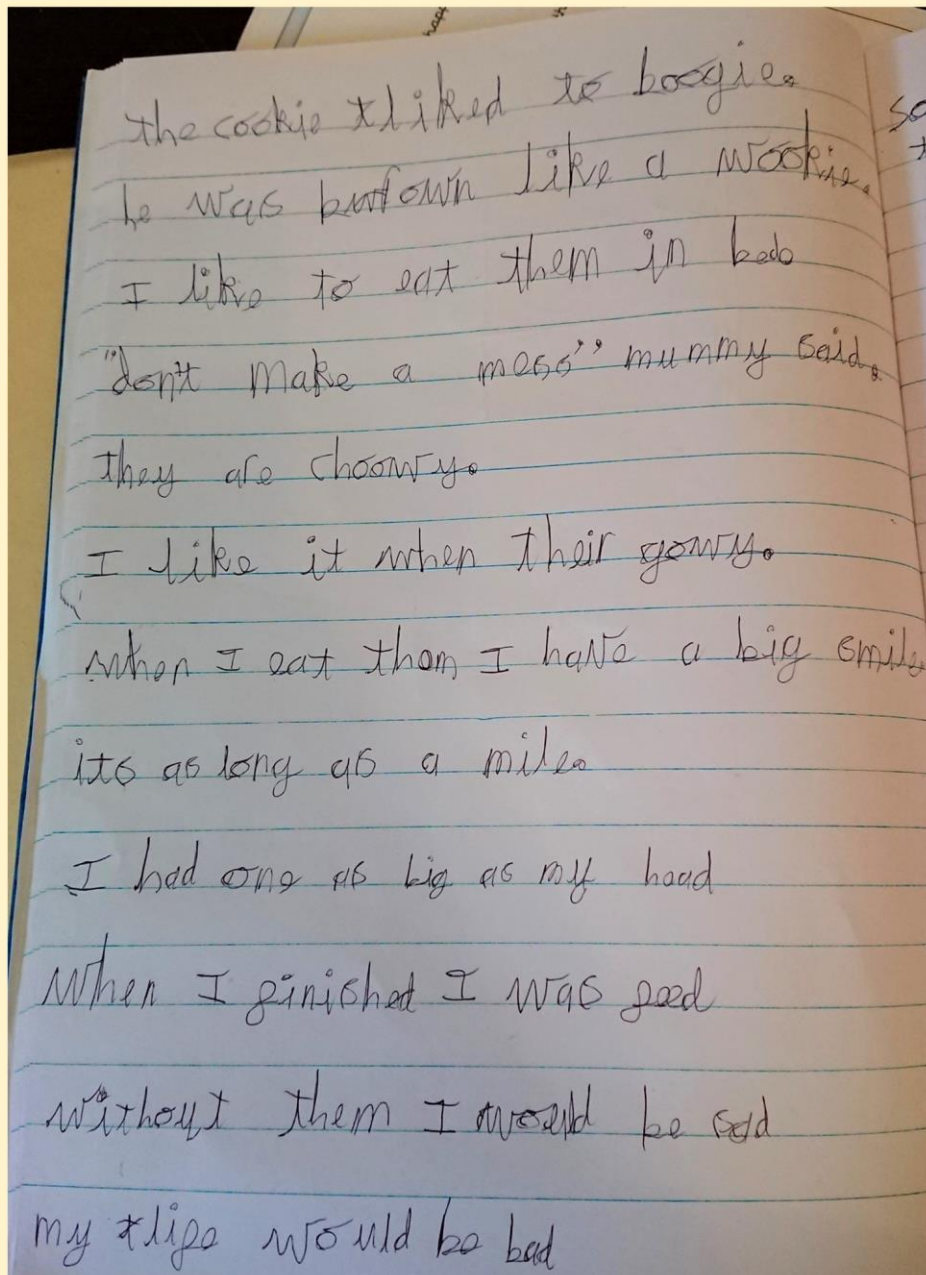 the cookie liked to boogie.
he was brown like a wookie.
I like to eat them in bed.
"don't make a mess" mummy said.
they are choowy.
I like it when their goowy.
when I eat them I have a big smile
its as long as a mile.
I had one as big as my head
When I finished I was feed
without them I would be sad
my life would be bad